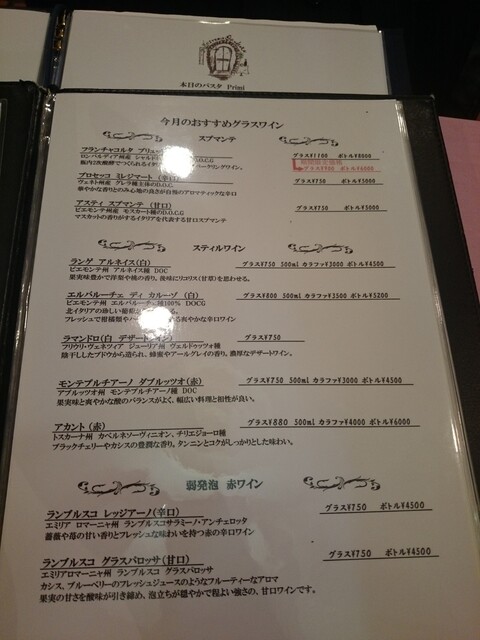 本日のパスタ Primi
今月のおすすめグラスワイン
スプマンテ
フランチャコルタ ブリュ
グラス¥1100 ボトル¥8000
ロンバルディア州産 シャルド D.O.C.G
瓶内2次醗酵でつくられるイタ パークリングワイン。
グラス¥900 ボトル¥6000
プロセッコ ミレジマート (辛口)
グラス¥750 ボトル¥5000
ヴェネト州産 グレラ種主体のD.O.C.
華やかな香りとのみ心地の良さが自慢のアロマティックな辛口
アスティ スプマンテ (甘口)
グラス¥750 ボトル¥5000
ピエモンテ州産 モスカート種D.O.C.G
マスカットの香りがするイタリアを代表する甘口スプマンテ
スティルワイン
ランゲ アルネイス(白)
グラス¥750 500ml カラファ¥3000 ボトル¥4500
ピエモンテ州産 アルネイス種 DOC
果実味豊かで洋梨や桃の香り。後味にリコリス(甘草)を思わせる。
エルバルーチェ ディ カルーゾ (白)
グラス¥800 500ml カラファ¥3500 ボトル¥5200
ピエモンテ州 エルバルーチェ種100% DOCG
北イタリアの珍しい
フレッシュで柑橘類や 爽やかな辛口ワイン
ラマンドロ(白 デザートワイン)
グラス¥750
フリウリ・ヴェネツィア ジューリア州 ヴェルドゥッツォ種
陰干ししたブドウから造られ、蜂蜜やアールグレイの香り。濃厚なデザートワイン。
モンテプルチアーノ ダブルッツオ(赤)
グラス¥750 500ml カラファ¥3000 ボトル¥4500
アブルッツオ州 モンテプルチアーノ種 DOC
果実味と爽やかな酸のバランスがよく、幅広い料理と相性が良い。
アカント (赤)
グラス¥880 500ml カラファ¥4000 ボトル¥6000
トスカーナ州 カベルネソーヴィニオン、チリエジョーロ種
ブラックチェリーやカシスの豊潤な香り。タンニンとコクがしっかりとした味わい。
弱発泡 赤ワイン
ランブルスコ レッジアーノ(辛口)
グラス¥750 ボトル¥4500
エミリア ロマーニャ州 ランブルスコサラミーノ・アンチェロッタ
薔薇や苺の甘い香りとフレッシュな味わいを持つ赤の辛口ワイン
ランブルスコ グラスパロッサ(甘口)
グラス¥750 ボトル¥4500
エミリアロマーニャ州 ランブルスコ グラスパロッサ
カシス、ブルーベリーのフレッシュジュースのようなフルーティーなアロマ
果実の甘さを酸味が引き締め、泡立ちが穏やかで程よい強さの、甘口ワインです。